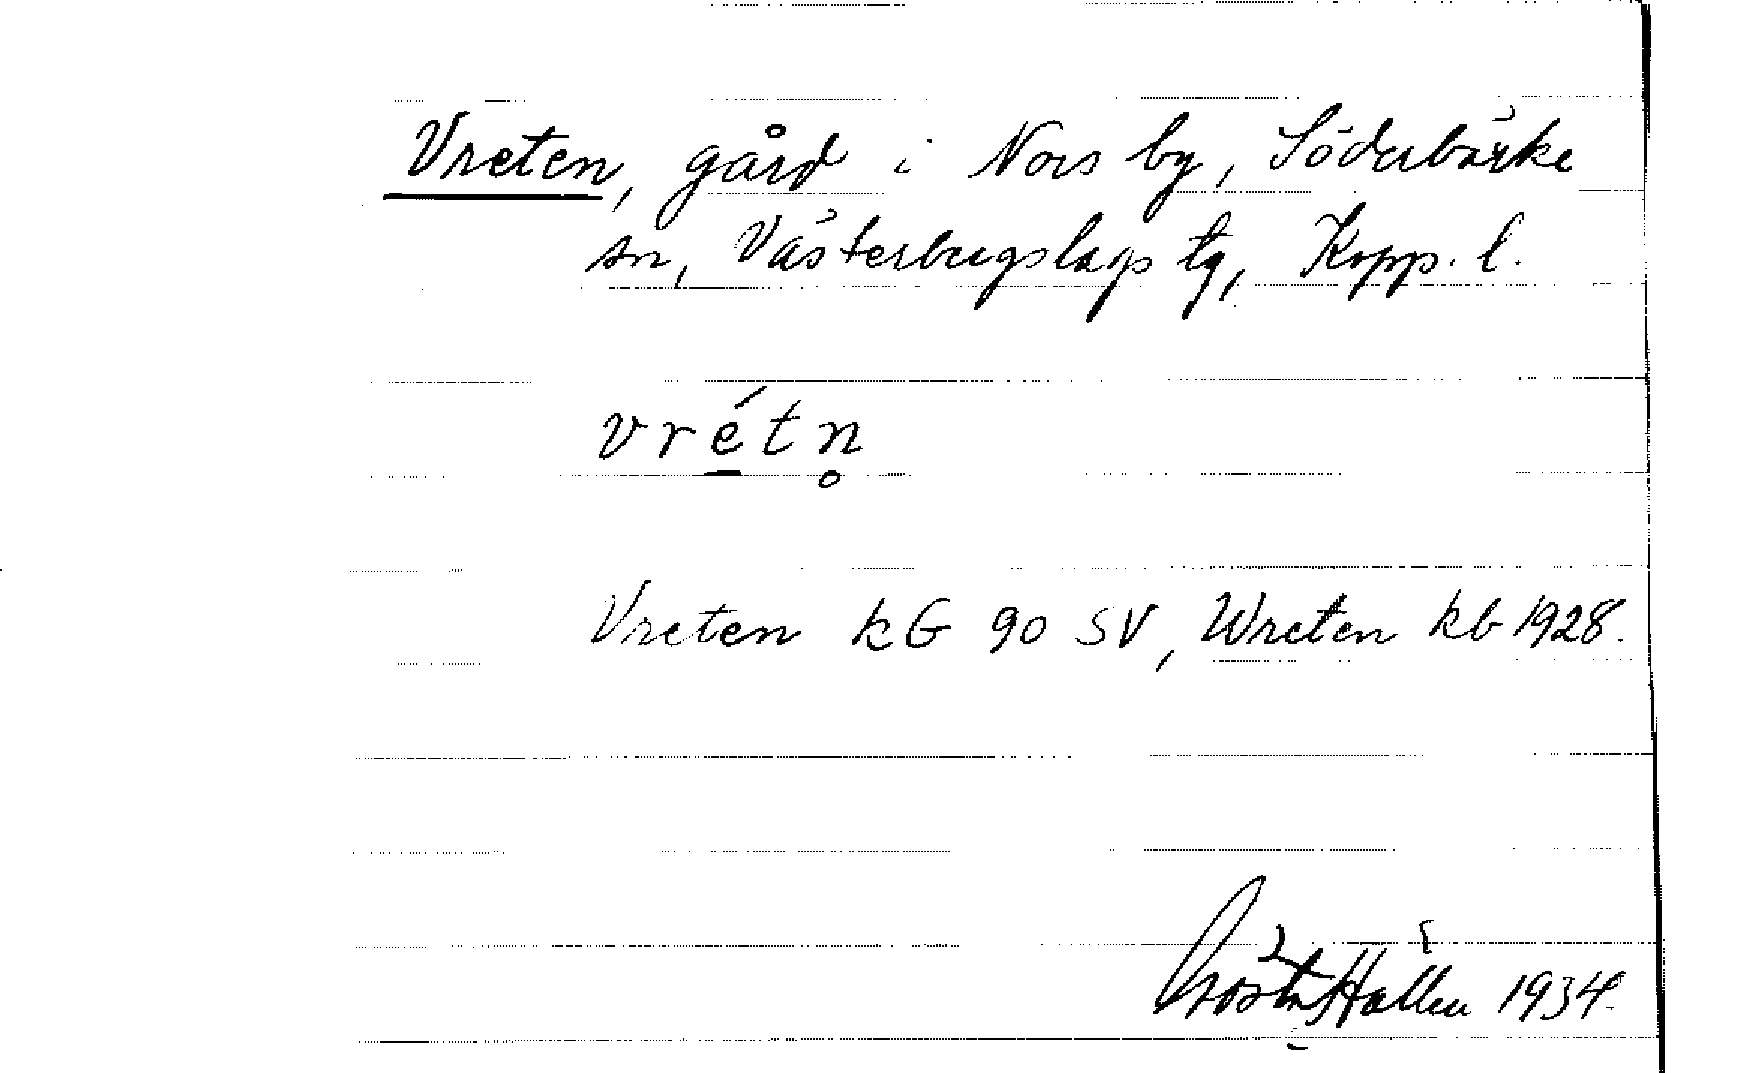 Vreten, gård i Nors by, Söderbärke
sn, Västerbergslags tg, Kopp. l.
vré̲tn̥
Vreten kG 90 SV, Wreten kb 1928.
Gösta Hallén 1934.